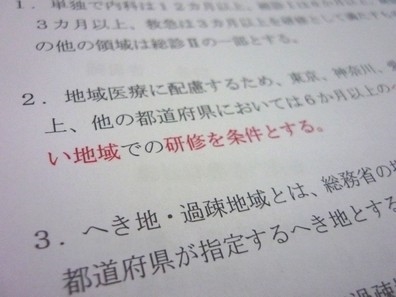 1．単独で内科は１２カ月以上、
３カ月以上、救急は３カ月以上を
の他の領域は総診Ⅱの一部とする。
2．地域医療に配慮するため、東京、神奈川、
上、他の都道府県においては６か月以上の
い地域での研修を条件とする。
3．へき地・過疎地域とは、総務省の
都道府県が指定するへき地とする